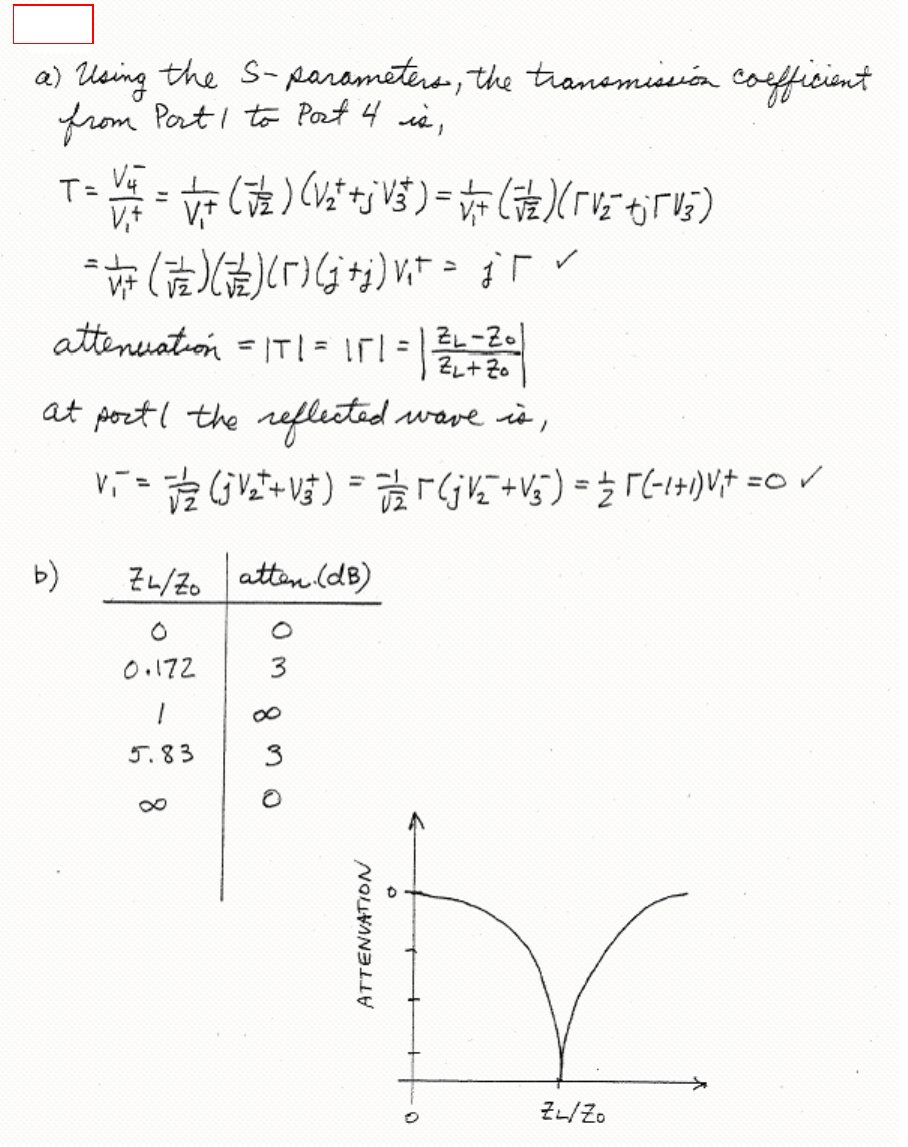 a) Using the S-parameters, the transmission coefficient
from Port 1 to Port 4 is,
T = V₄⁻/V₁⁺ = 1/V₁⁺ (-1/√2) (V₂⁺ + jV₃⁺) = 1/V₁⁺ (-1/√2)(ΓV₂⁻ + jΓV₃⁻)
= 1/V₁⁺ (-1/√2)(-1/√2)(Γ)(j+j)V₁⁺ = jΓ ✓
attenuation = |T| = |Γ| = |(ZL-Z0)/(ZL+Z0)|
at port 1 the reflected wave is,
V₁⁻ = -1/√2 (jV₂⁺ + V₃⁺) = -1/√2 Γ(jV₂⁻ + V₃⁻) = 1/2 Γ(-1+1)V₁⁺ = 0 ✓
b) ZL/Z0 atten.(dB)
0 0
0.172 3
1 ∞
5.83 3
∞ 0
ATTENUATION
0
0
ZL/Z0